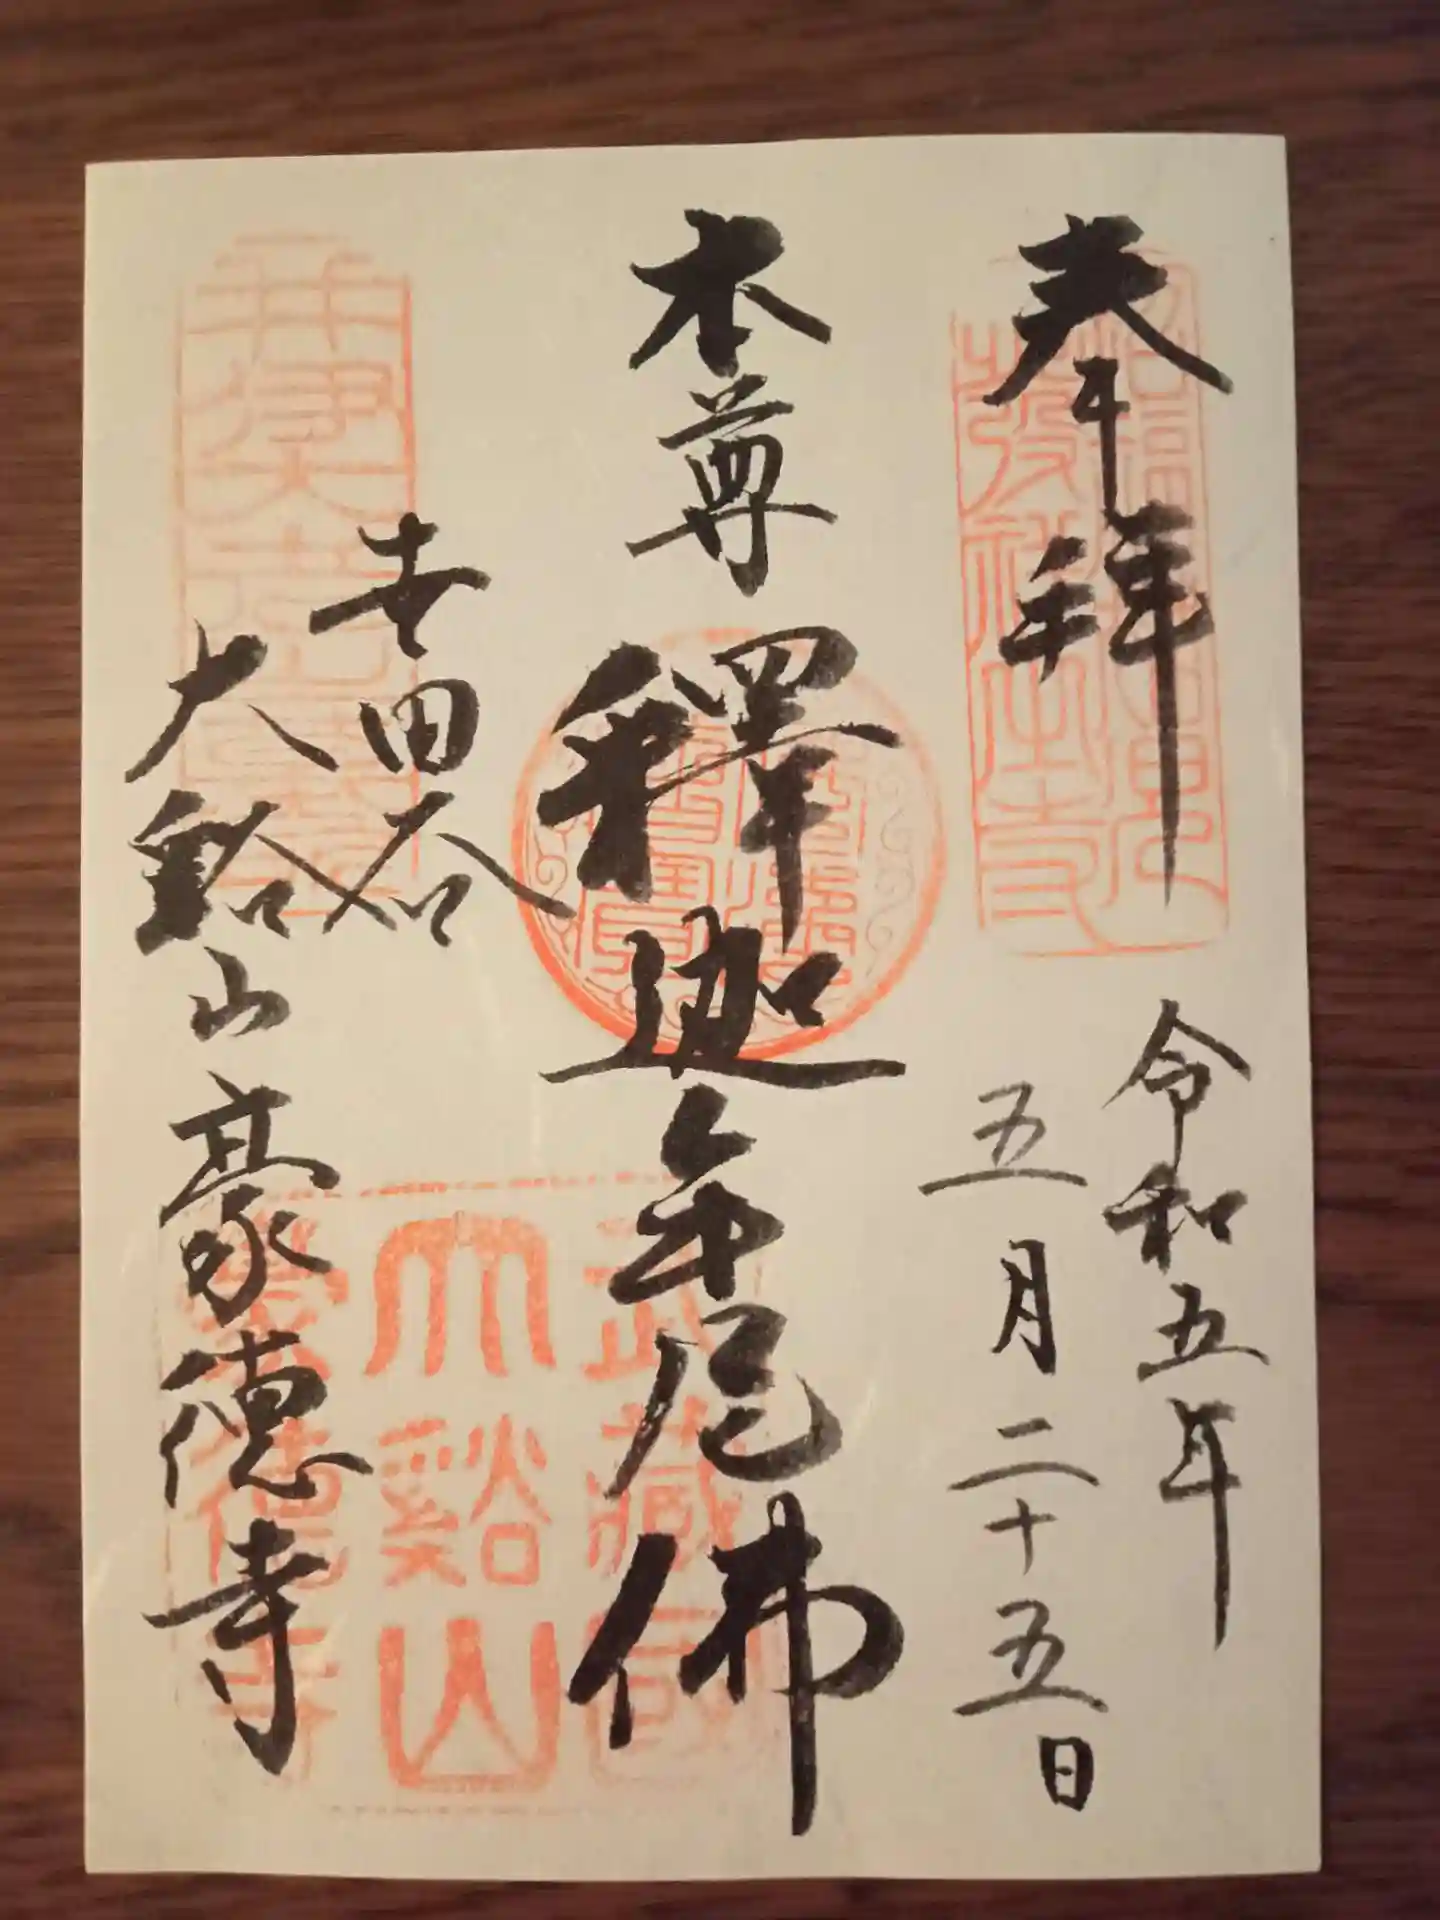 奉拝
令和五年
五月二十五日
本尊 釋迦牟尼佛
世田谷
大谿山豪徳寺
發祥之寺
武藏國
大谿山
豪徳寺